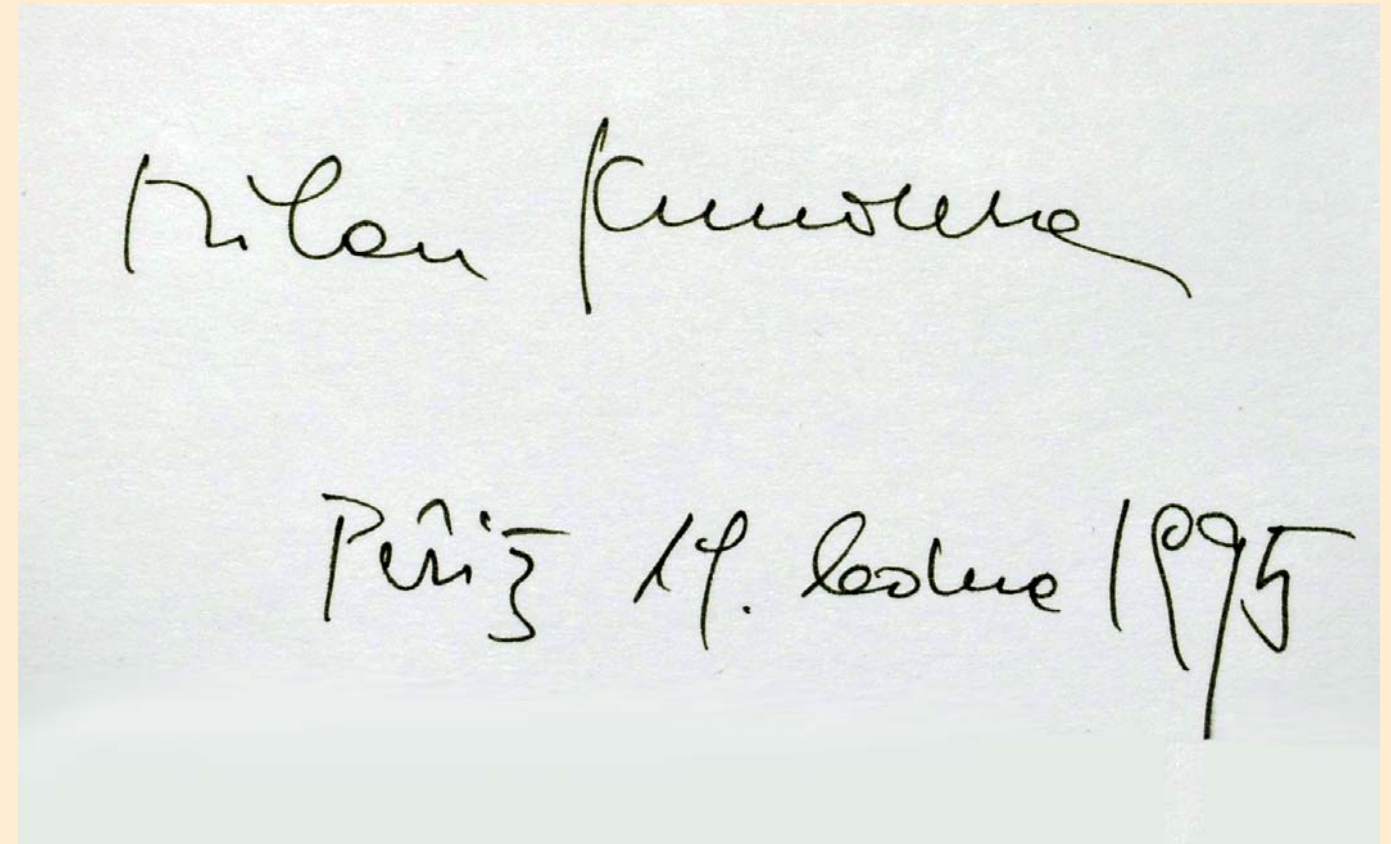 Milan Kundera
Paříž 19. ledna 1995